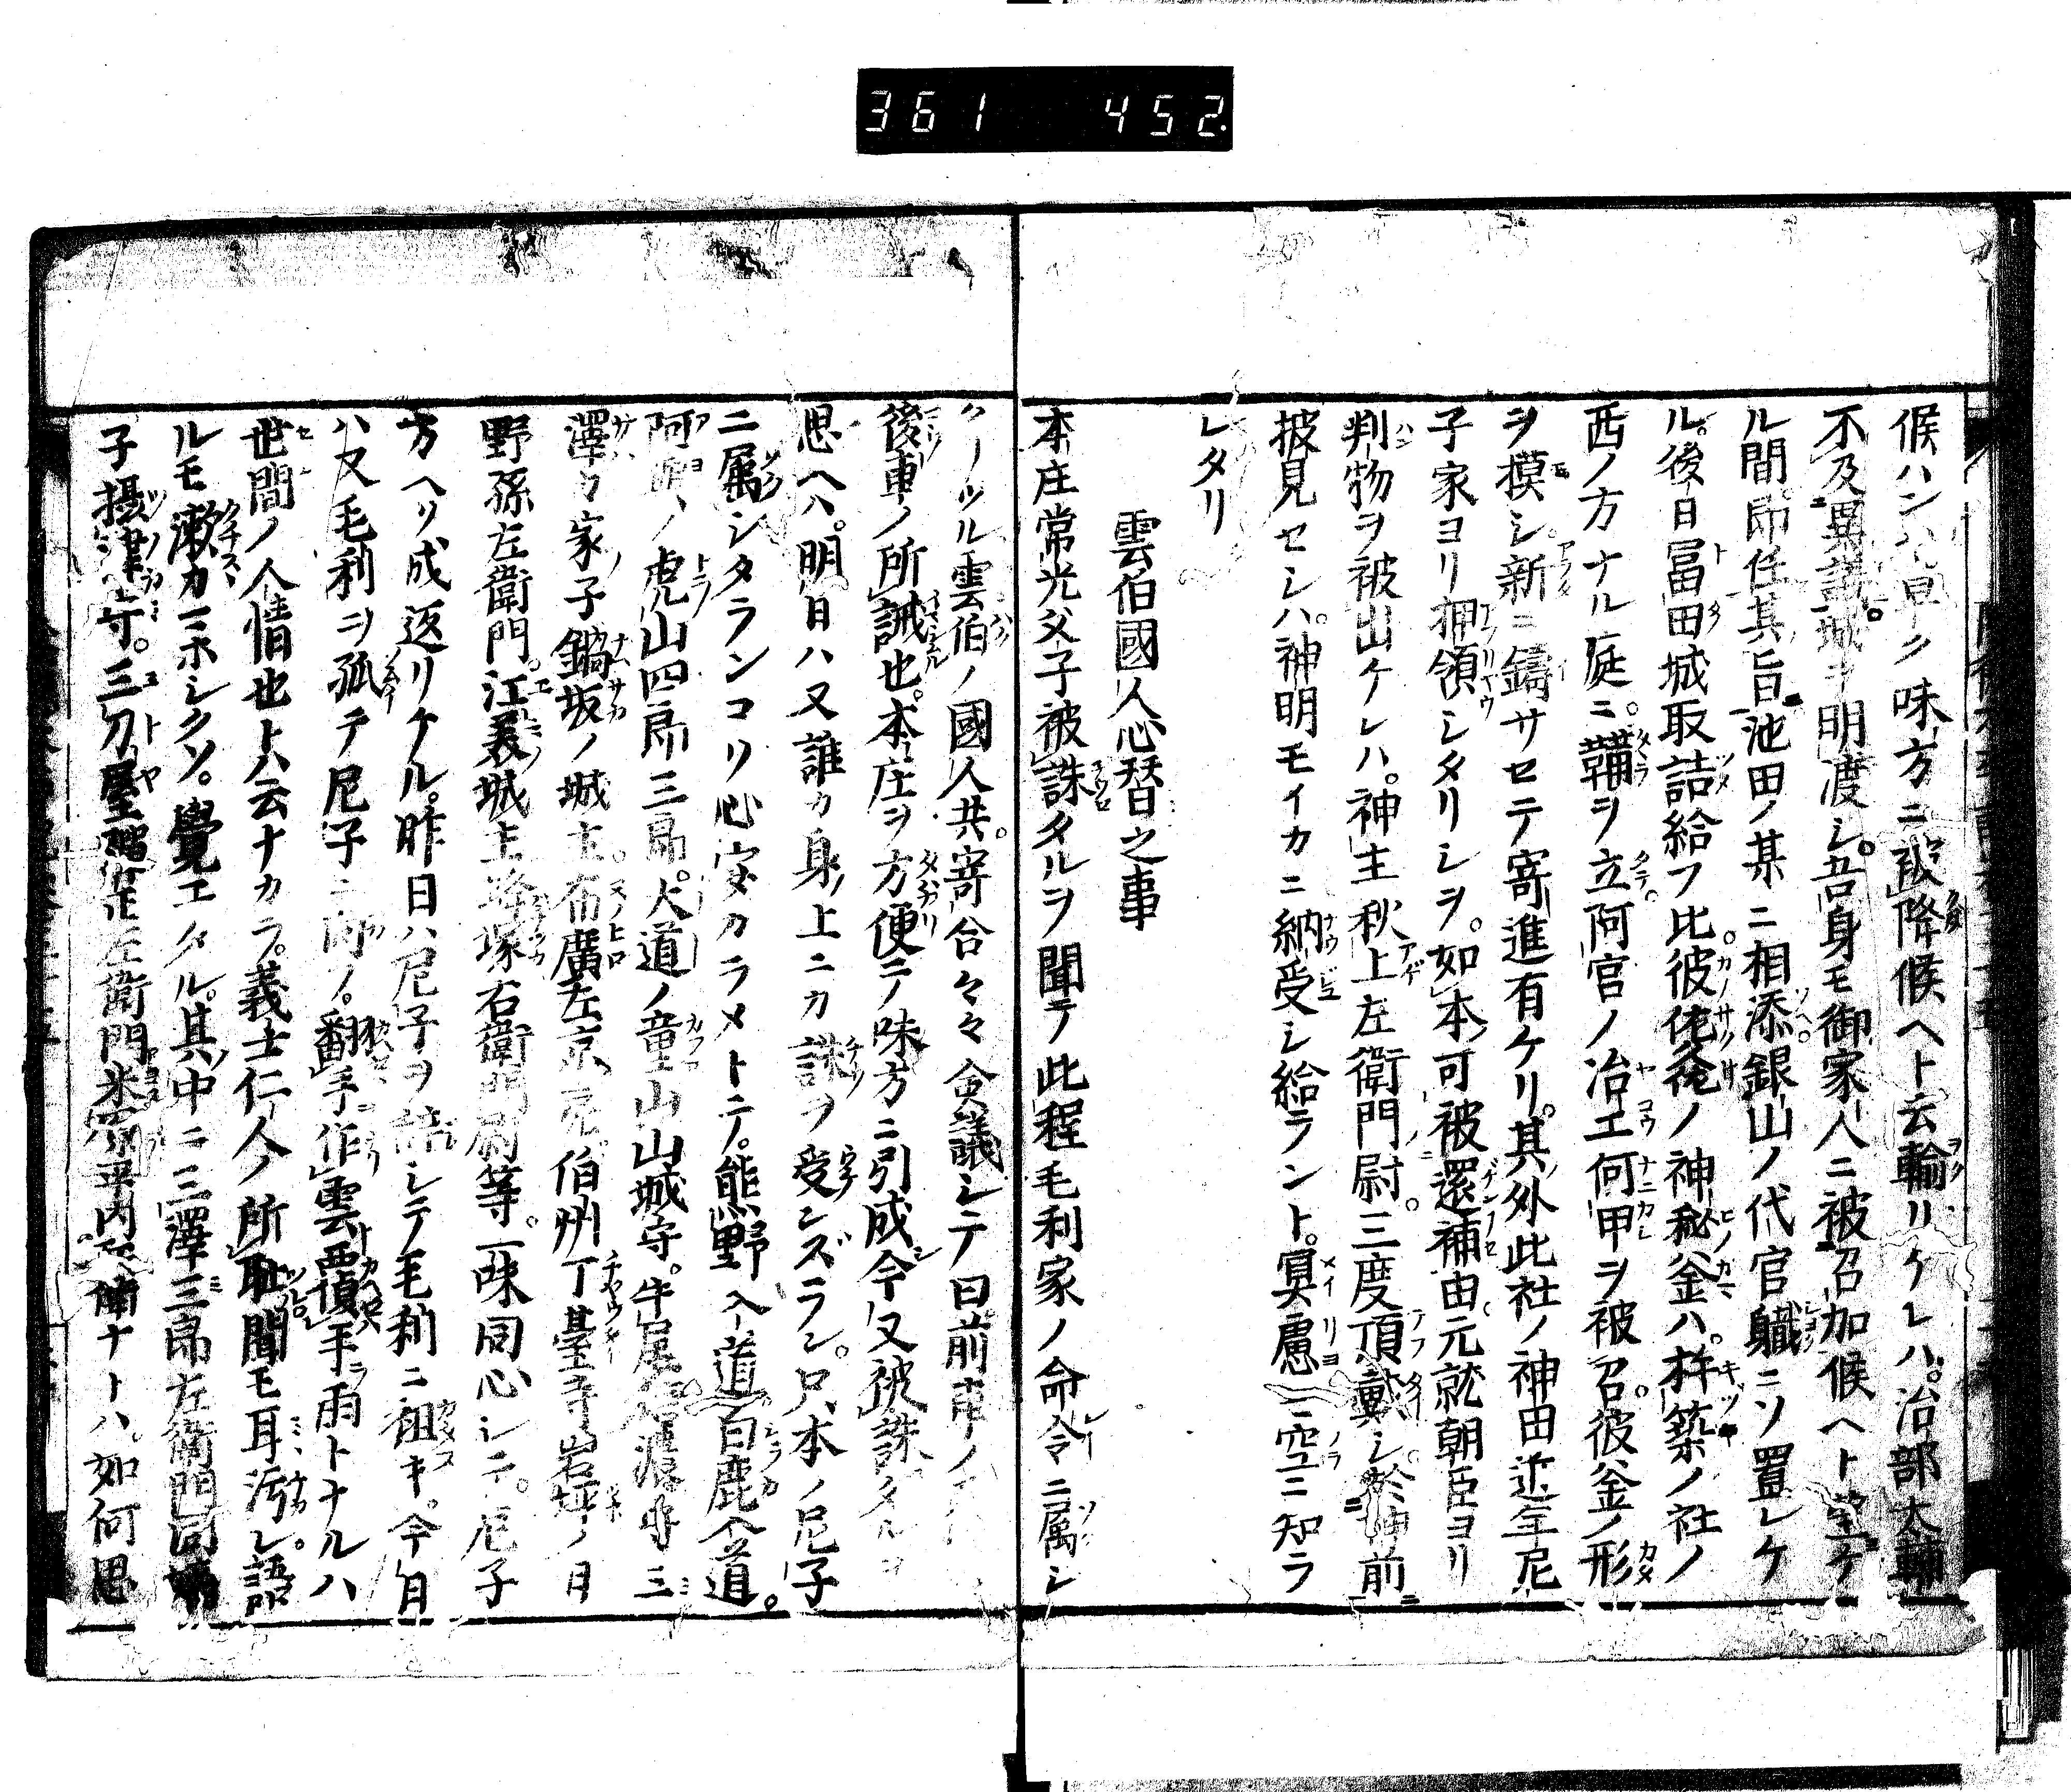 361 452.
候ハン早ク味方ニ被降候ヘト云輸リケレハ。治部太輔
不及異議城ヲ明渡シ。吾身モ御家人ニ被召加候ヘト望ケ
ル間即任其旨池田ノ某ニ相添銀山ノ代官職ニソ置レケ
ル。後日冨田城取詰給フ比彼佐ノ神秘釜ハ。杵築ノ社ノ
西ノ方ナル庭ニ。鞴ヲ立阿官ノ冶工何甲ヲ被召。彼釜ノ形
ヲ模シ新ニ鑄サセテ寄進有ケリ。其外此社ノ神田近年尼
子家ヨリ押領シタリシヲ。如本可被還補由元就朝臣ヨリ
判物ヲ被出ケレハ。神主秋上左衛門尉三度頂戴シ。於神前
披見セシハ。神明モイカニ納受シ給ラント。冥慮ニ空ニ知ラ
レタリ
雲伯國人心替之事
本庄常光父子被誅タルヲ聞テ此程毛利家ノ命令ニ属シ
ケーツル雲伯ノ國人共。寄合々々僉議シテ曰前車ノ
後車ノ所誡也。本庄ヲ方便テ味方ニ引成今又被誅タルヲ
思ヘハ。明日ハ又誰カ身ノ上ニカ誅ヲ受ンズラン。只本ノ尼子
ニ属シタランコソ心安カラメトテ。熊野入道白鹿入道。
阿ノ虎山四郎三郎。大道ノ童山山城守。牛尾守三
澤カ家子鍋坂ノ城主。布廣左京亮。伯州丁臺寺岩坪ノ日
野孫左衛門。江美城主塚右衛門尉等。一味同心シテ。尼子
方ヘソ成返リケル。昨日ハ尼子ヲ詰シテ毛利ニ徂キ。今日
ハ又毛利ヲ孤テ尼子ニ。翻手作雲覆手雨トナルハ
世間ノ人情也トハ云ナカラ。義士仁人ノ所耻聞モ耳汚レ。語
ルモ漱カマホシクソ。覺エタル。其中ニ三澤三郎左衛門同
子摂津守。三刀屋左衛門米平内ナトハ。如何思